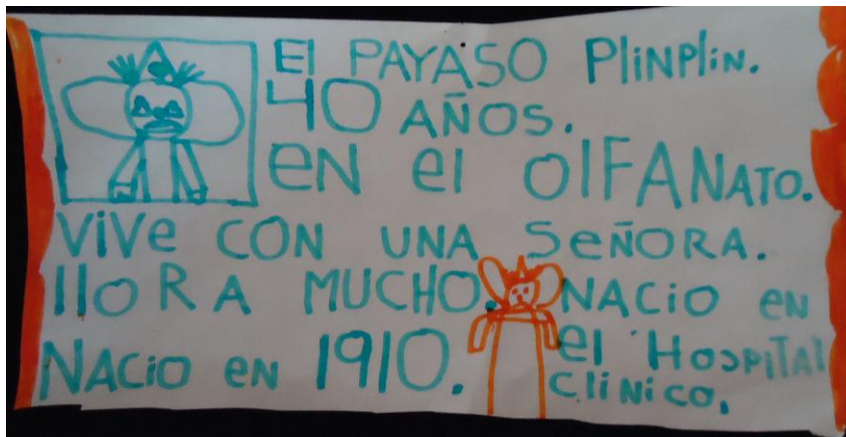 El PAYASO PlinPlin.
40 AÑOS.
eN el OlFANATO.
ViVe CON UNA SeÑORA.
lloRA MUCHO. NACio eN
NACio eN 1910. el HospiTAl
CliNico.